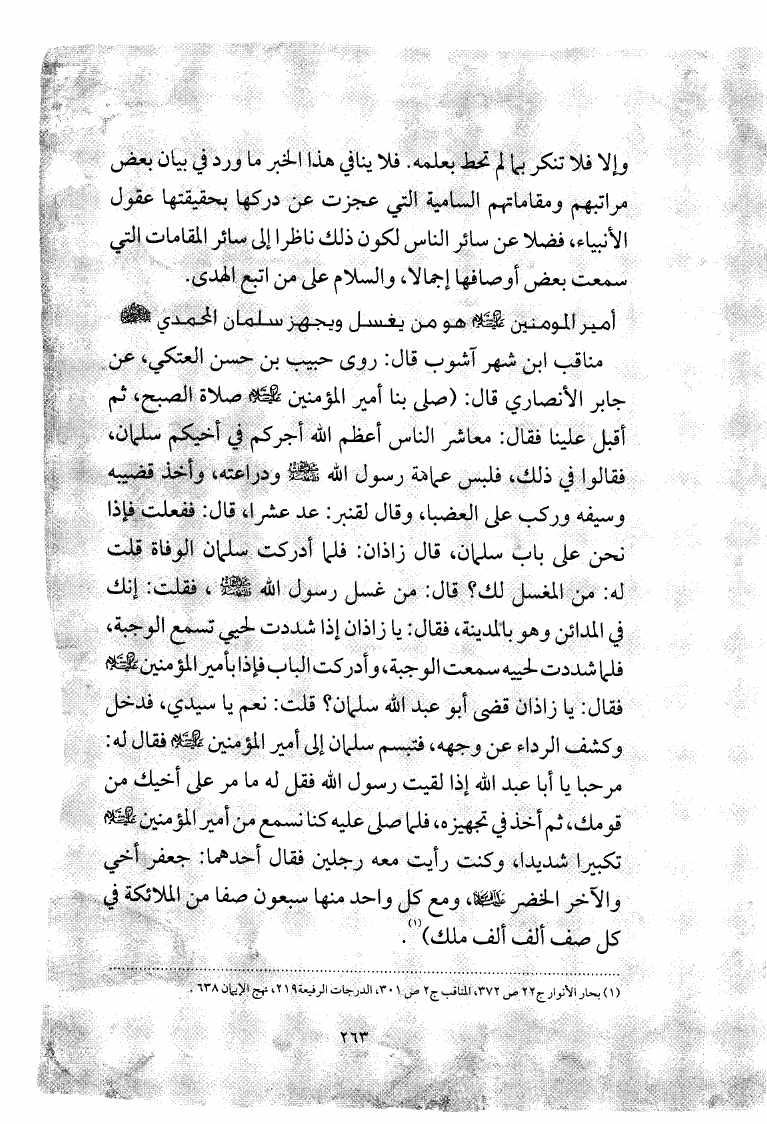 وإلا فلا تنكر بما لم تحط بعلمه. فلا ينافي هذا الخبر ما ورد في بيان بعض
مراتبهم ومقاماتهم السامية التي عجزت عن دركها بحقيقتها عقول
الأنبياء، فضلا عن سائر الناس لكون ذلك ناظرا إلى سائر المقامات التي
سمعت بعض أوصافها إجمالا، والسلام على من اتبع الهدى.
أمير المومنين عليه السلام هو من يغسل ويجهز سلمان المحمدي
مناقب ابن شهر آشوب قال: روى حبيب بن حسن العتكي، عن
جابر الأنصاري قال: (صلى بنا أمير المؤمنين عليه السلام صلاة الصبح، ثم
أقبل علينا فقال: معاشر الناس أعظم الله أجركم في أخيكم سلمان،
فقالوا في ذلك، فلبس عمامة رسول الله ﷺ ودراعته، وأخذ قضيبه
وسيفه وركب على العضبا، وقال لقنبر: عد عشرا، قال: ففعلت فإذا
نحن على باب سلمان، قال زاذان: فلما أدركت سلمان الوفاة قلت
له: من المغسل لك؟ قال: من غسل رسول الله ﷺ ، فقلت: إنك
في المدائن وهو بالمدينة، فقال: يا زاذان إذا شددت لحيي تسمع الوجبة،
فلما شددت لحييه سمعت الوجبة، وأدركت الباب فإذا بأمير المؤمنين عليه السلام
فقال: يا زاذان قضى أبو عبد الله سلمان؟ قلت: نعم يا سيدي، فدخل
وكشف الرداء عن وجهه، فتبسم سلمان إلى أمير المؤمنين عليه السلام فقال له:
مرحبا يا أبا عبد الله إذا لقيت رسول الله فقل له ما مر على أخيك من
قومك، ثم أخذ في تجهيزه، فلما صلى عليه كنا نسمع من أمير المؤمنين عليه السلام
تكبيرا شديدا، وكنت رأيت معه رجلين فقال أحدهما: جعفر أخي
والآخر الخضر، ومع كل واحد منها سبعون صفا من الملائكة في
كل صف ألف ألف ملك)(١).
(١) بحار الأنوار ج٢٢ ص ٣٧٢، المناقب ج٢ ص ٣٠١، الدرجات الرفيعة٢١٩، نهج الإيمان ٦٣٨ .
٢٦٣